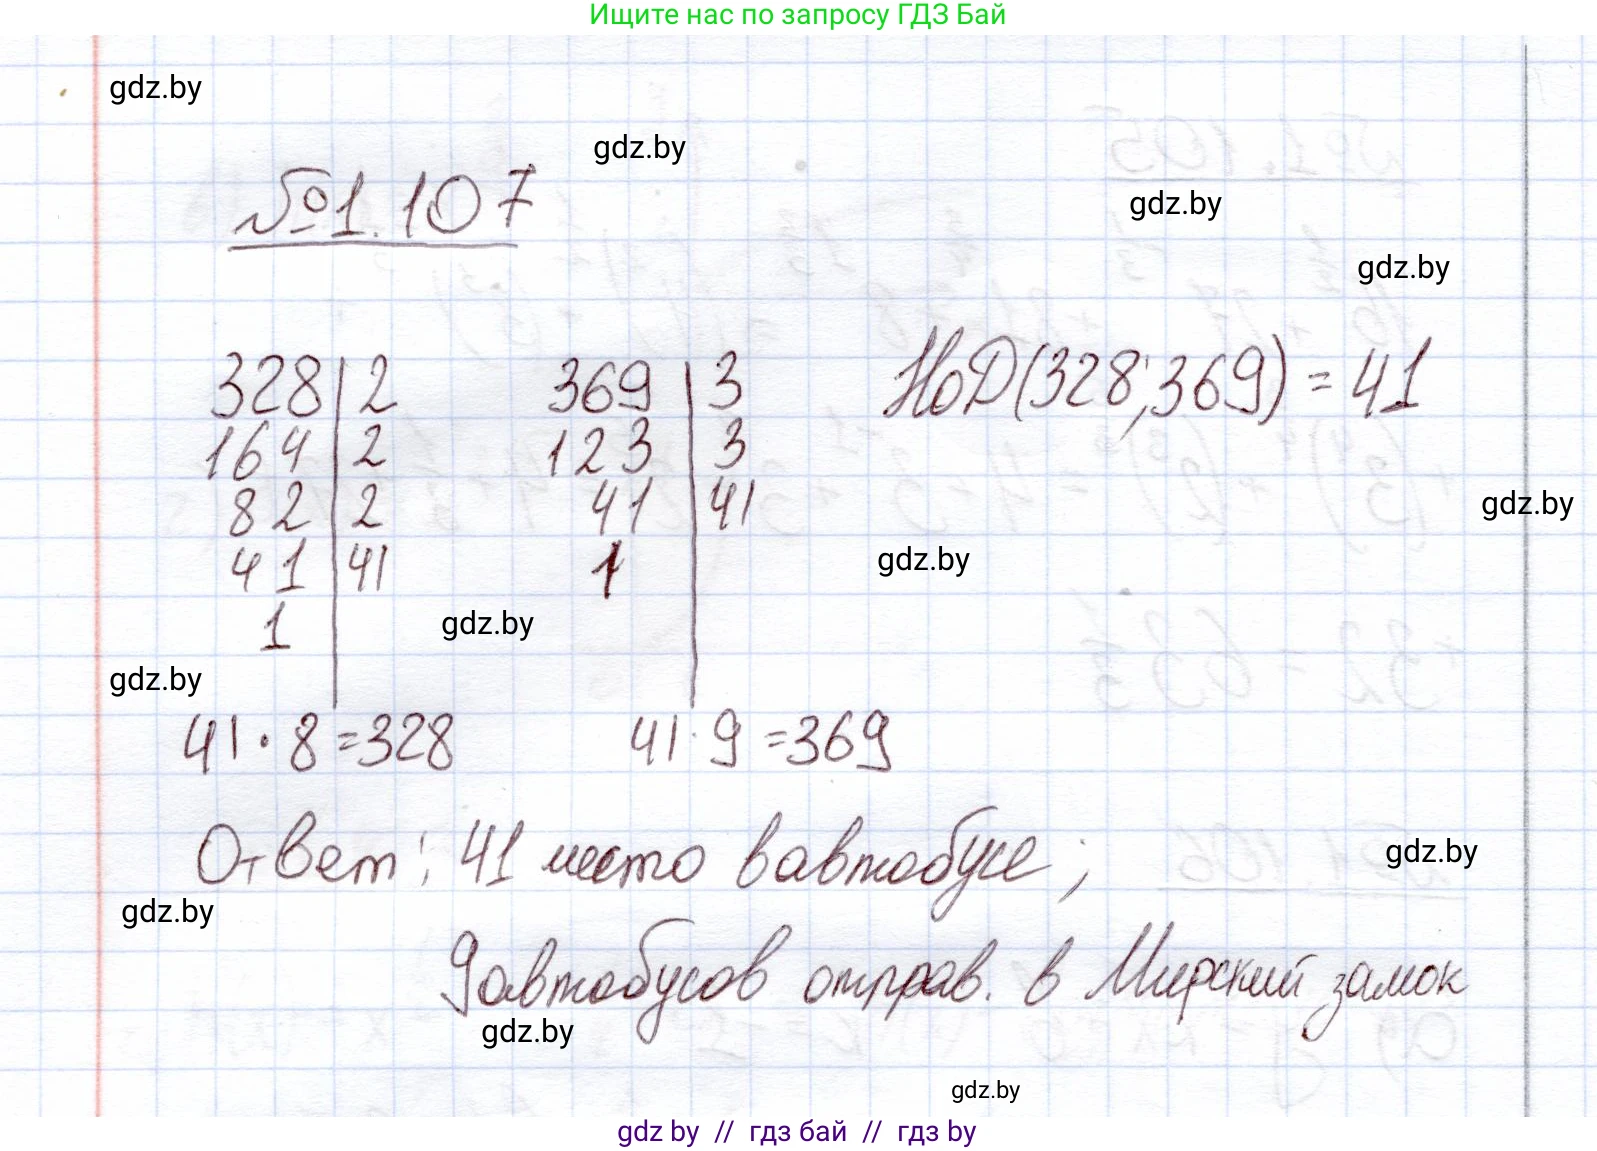 Ищите нас по запросу ГДЗ Бай
gdz.by
gdz.by
№1.107
gdz.by
gdz.by
328 | 2 369 | 3 НоD(328;369) = 41
164 | 2 123 | 3
82 | 2 41 | 41
gdz.by
41 | 41 1
gdz.by
1
gdz.by
gdz.by
41·8=328 41·9=369
Ответ: 41 место в автобусе;
gdz.by
gdz.by
9 автобусов отправ. в Мирский замок
gdz.by
gdz.by
gdz by // гдз бай // гдз by